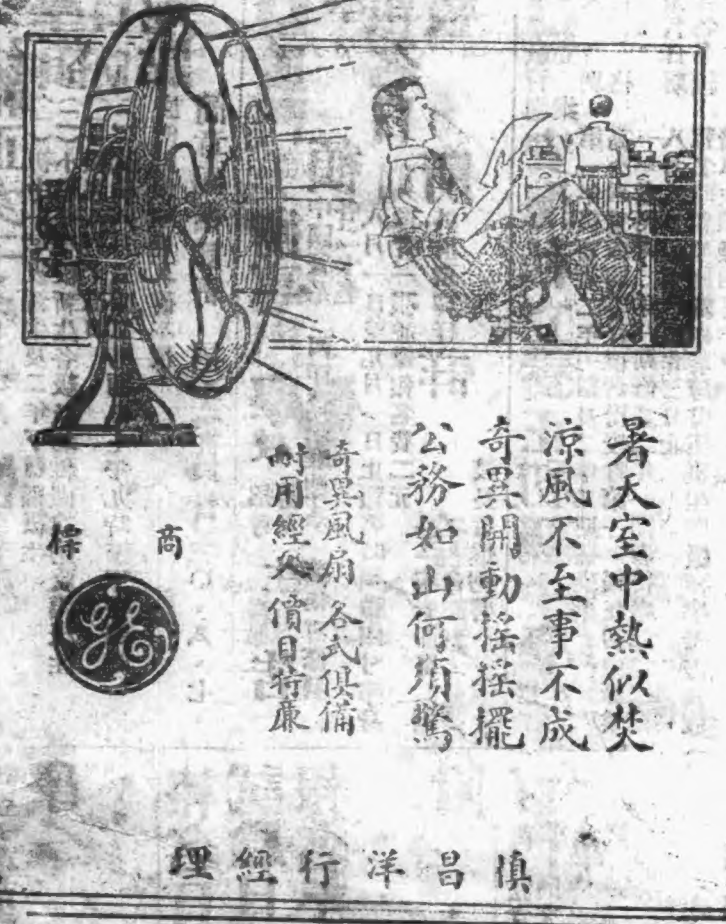 暑天室中熱似焚
涼風不至事不成
奇異開動搖搖擺
公務如山何須驚
奇異風扇 各式俱備
耐用經久 價目特廉
商標
GE
慎昌洋行經理